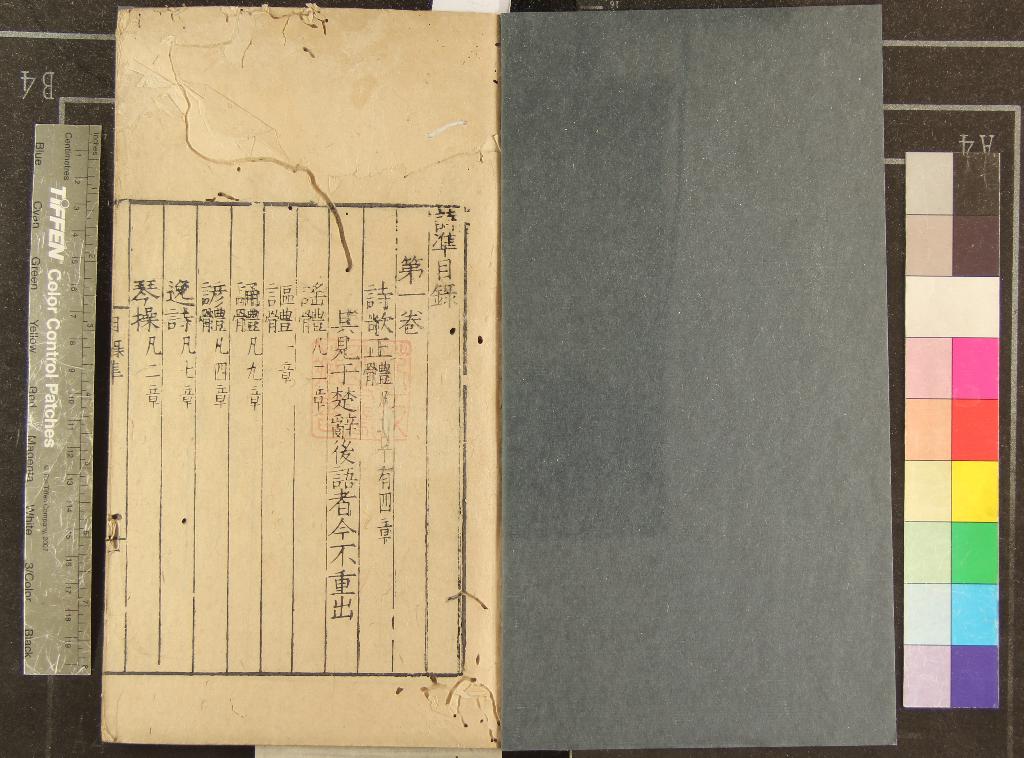 詩準目錄
第一卷
詩歌正體凡 十有四章
其見于楚辭後語者今不重出
謠體凡二章
謳體一章
誦體凡九章
諺體凡四章
逸詩凡七章
琴操凡二章
目錄
B4
A4
inches
Centimetres
TIFFEN Color Control Patches
© The Tiffen Company, 2007
Blue
Cyan
Green
Yellow
Red
Magenta
White
3/Color
Black